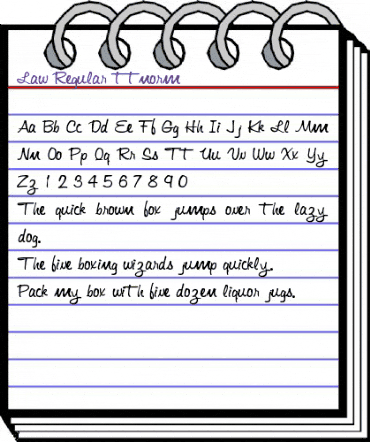 Law Regular TT norm
Aa Bb Cc Dd Ee Ff Gg Hh Ii Jj Kk Ll Mm
Nn Oo Pp Qq Rr Ss TT Uu Vv Ww Xx Yy
Zz 1 2 3 4 5 6 7 8 9 0
The quick brown fox jumps over the lazy
dog.
The five boxing wizards jump quickly.
Pack my box with five dozen liquor jugs.